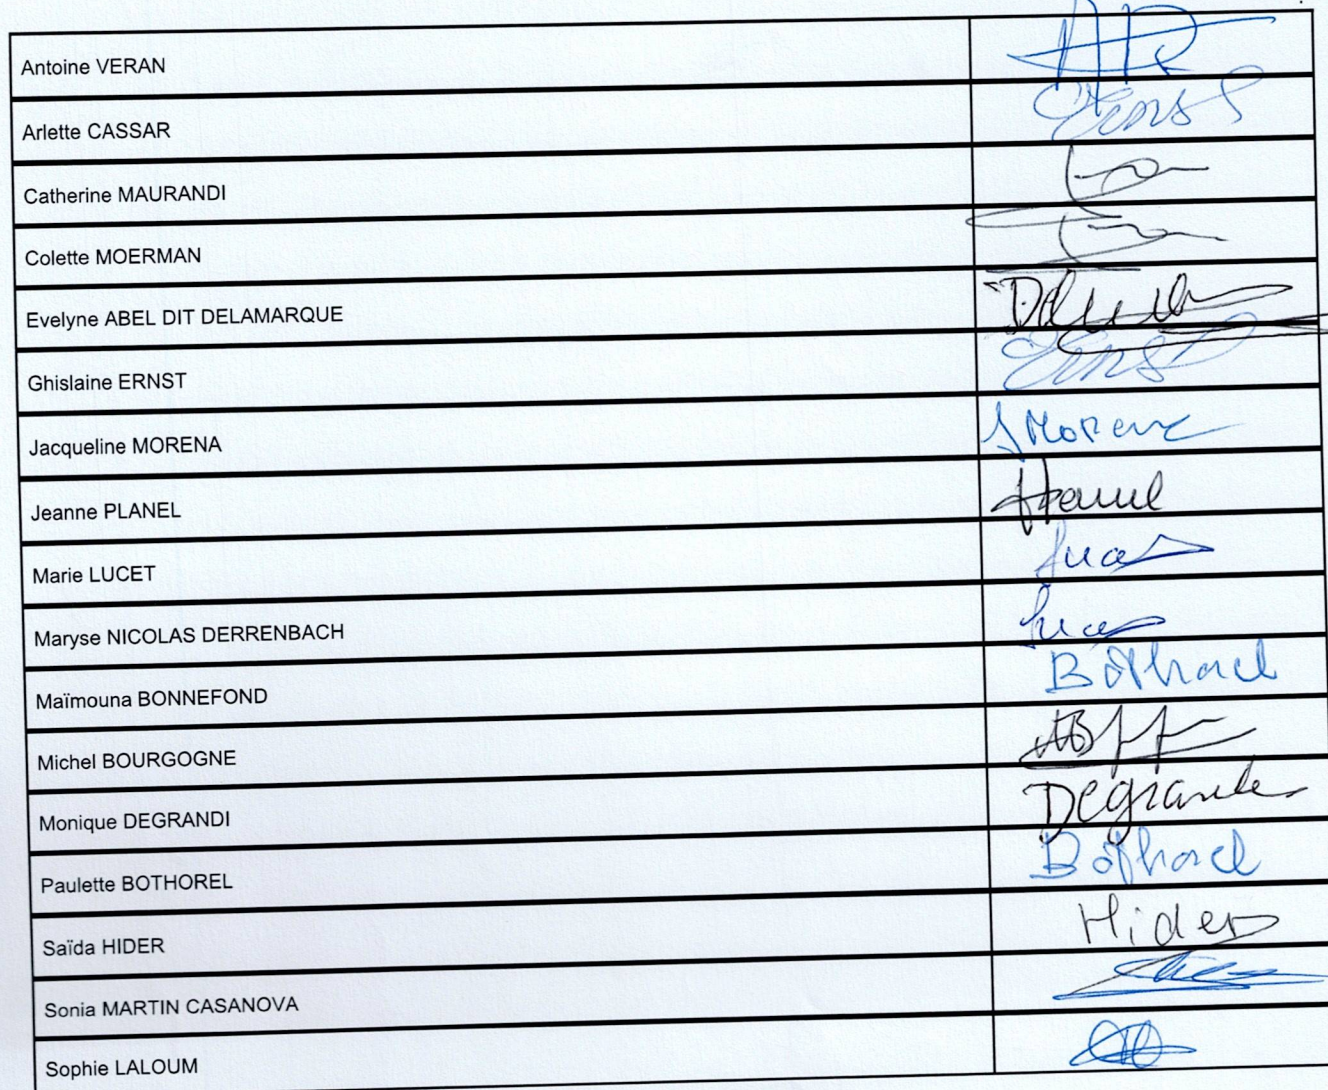 Antoine VERAN
Arlette CASSAR Ernst
Catherine MAURANDI
Colette MOERMAN
Evelyne ABEL DIT DELAMARQUE
Ghislaine ERNST Ernst
Jacqueline MORENA J Morena
Jeanne PLANEL
Marie LUCET
Maryse NICOLAS DERRENBACH
Maïmouna BONNEFOND Bothorel
Michel BOURGOGNE
Monique DEGRANDI Degrandi
Paulette BOTHOREL Bothorel
Saïda HIDER Hider
Sonia MARTIN CASANOVA
Sophie LALOUM